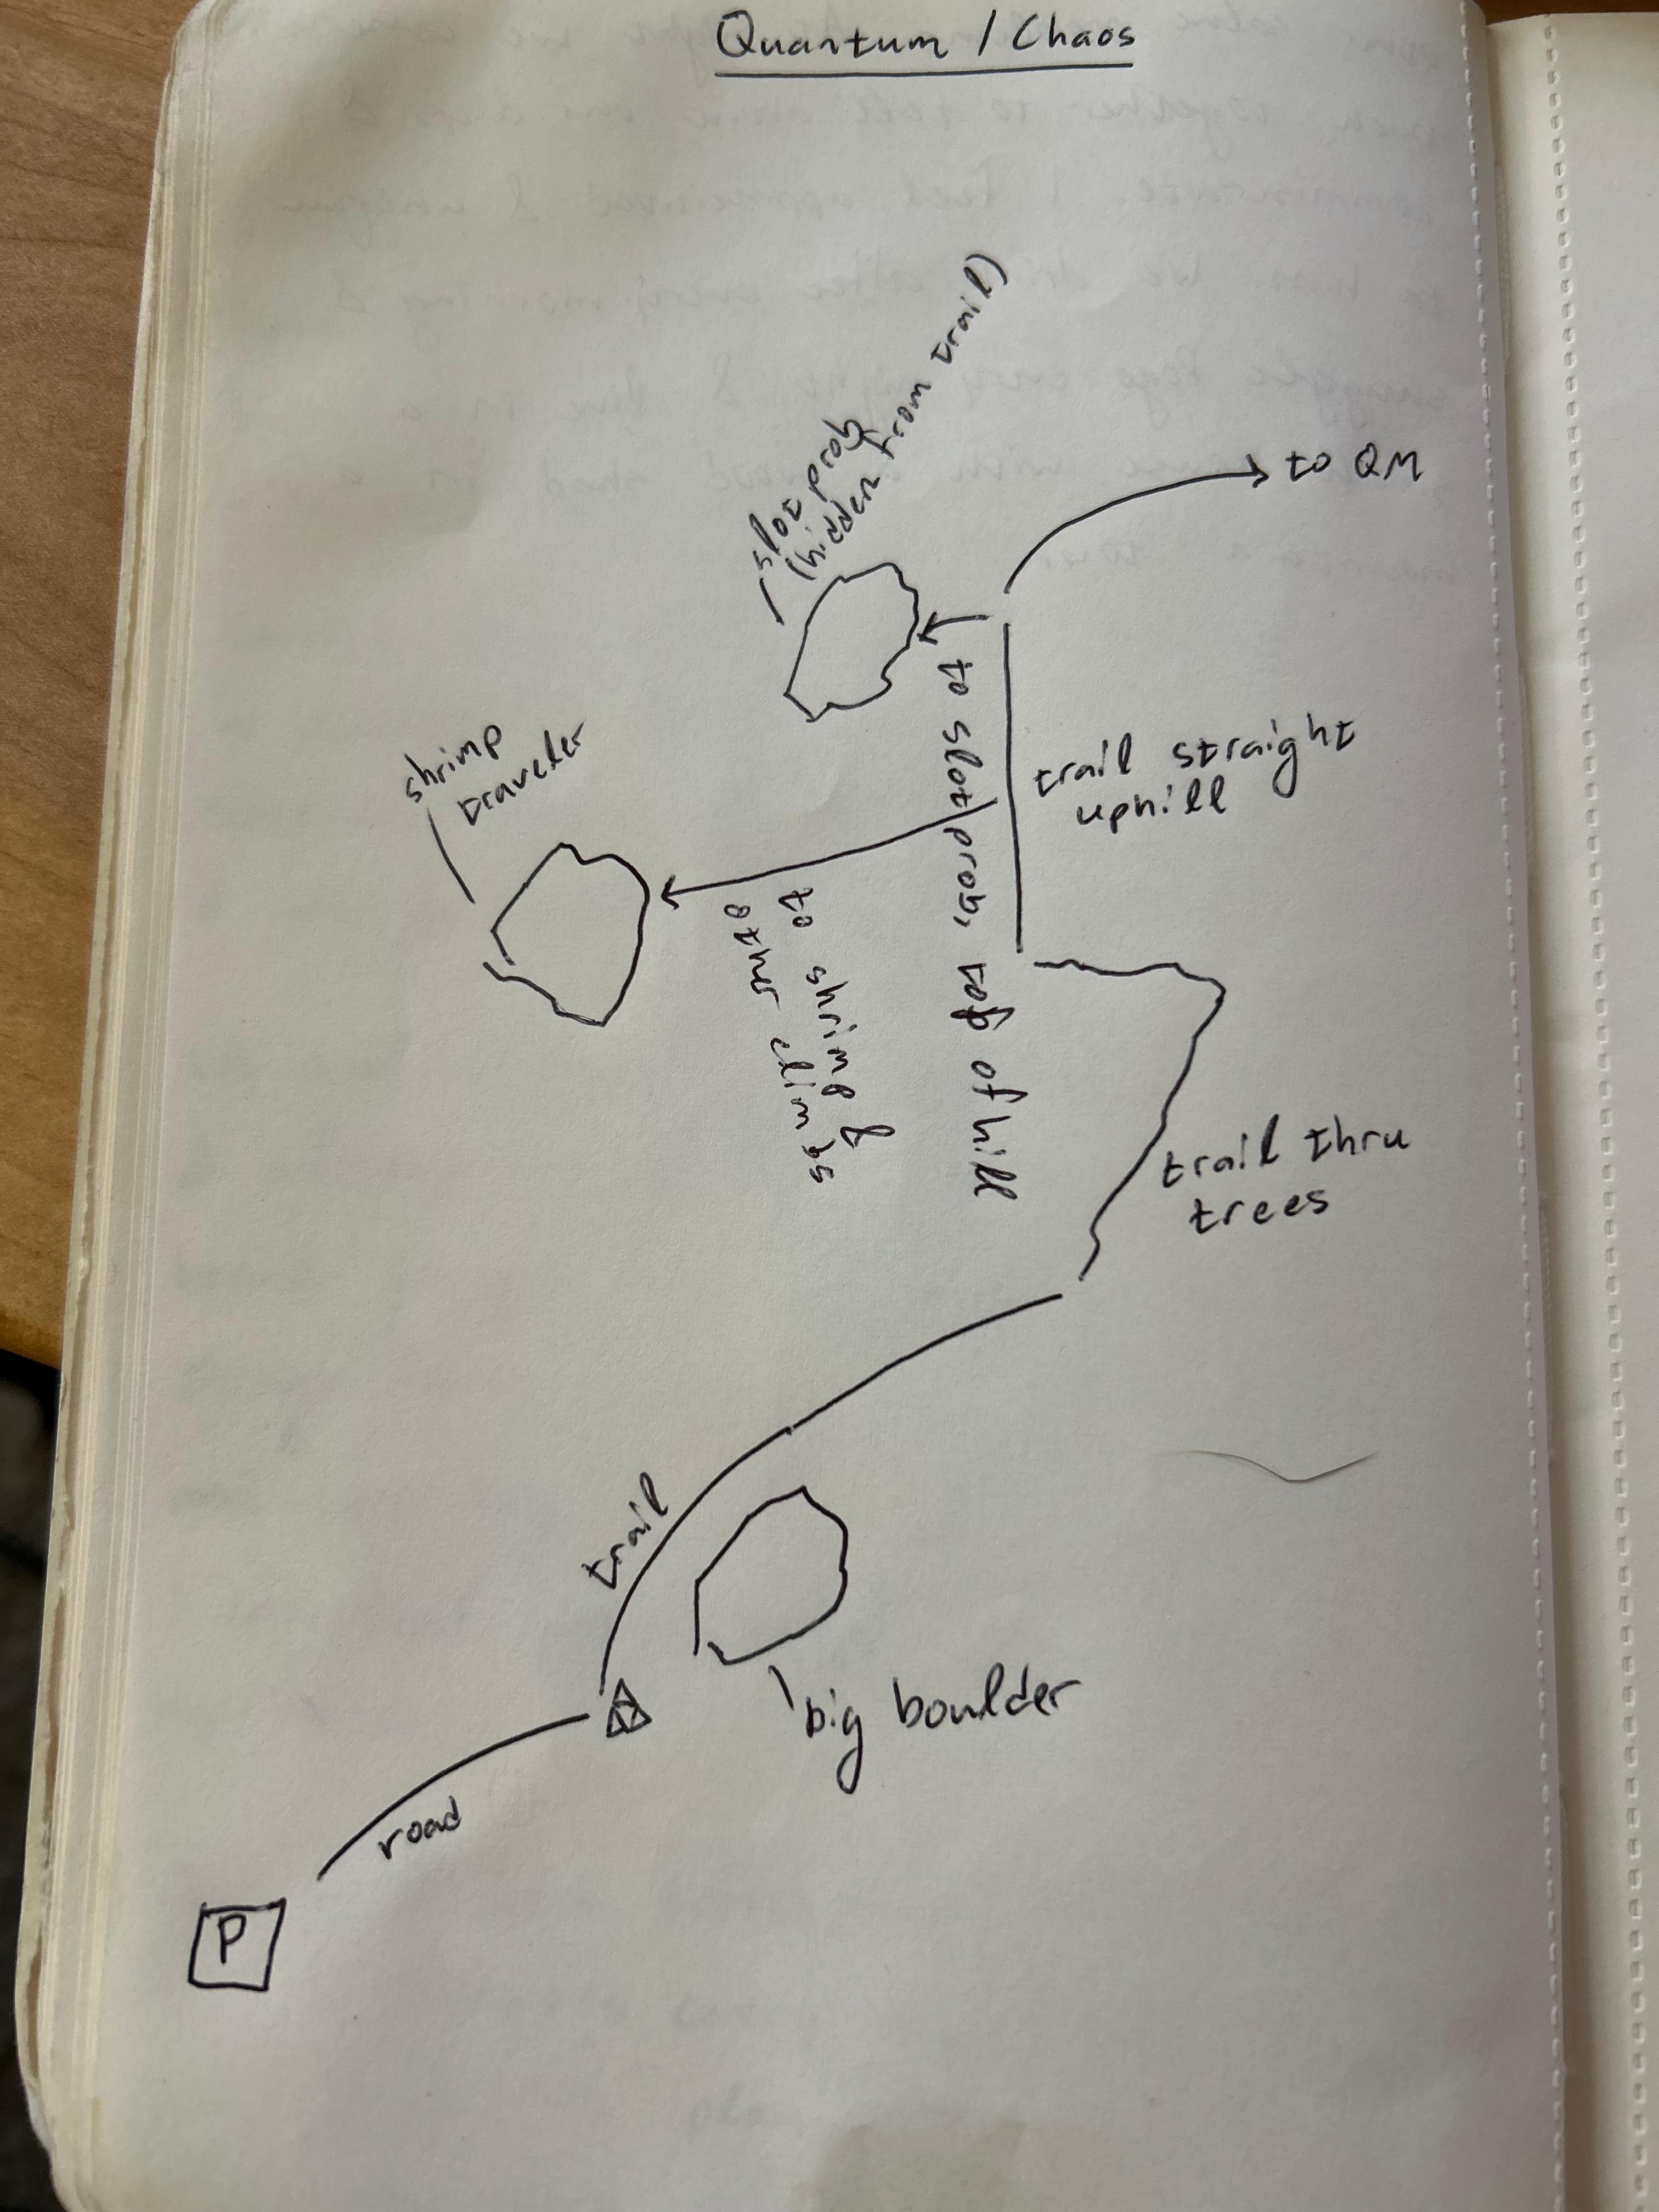 Quantum / Chaos
slot prob
(hidden from trail)
to QM
shrimp
traveler
trail straight
uphill
to slot prob, top of hill
to shrimp &
other climbs
trail thru
trees
trail
big boulder
road
P